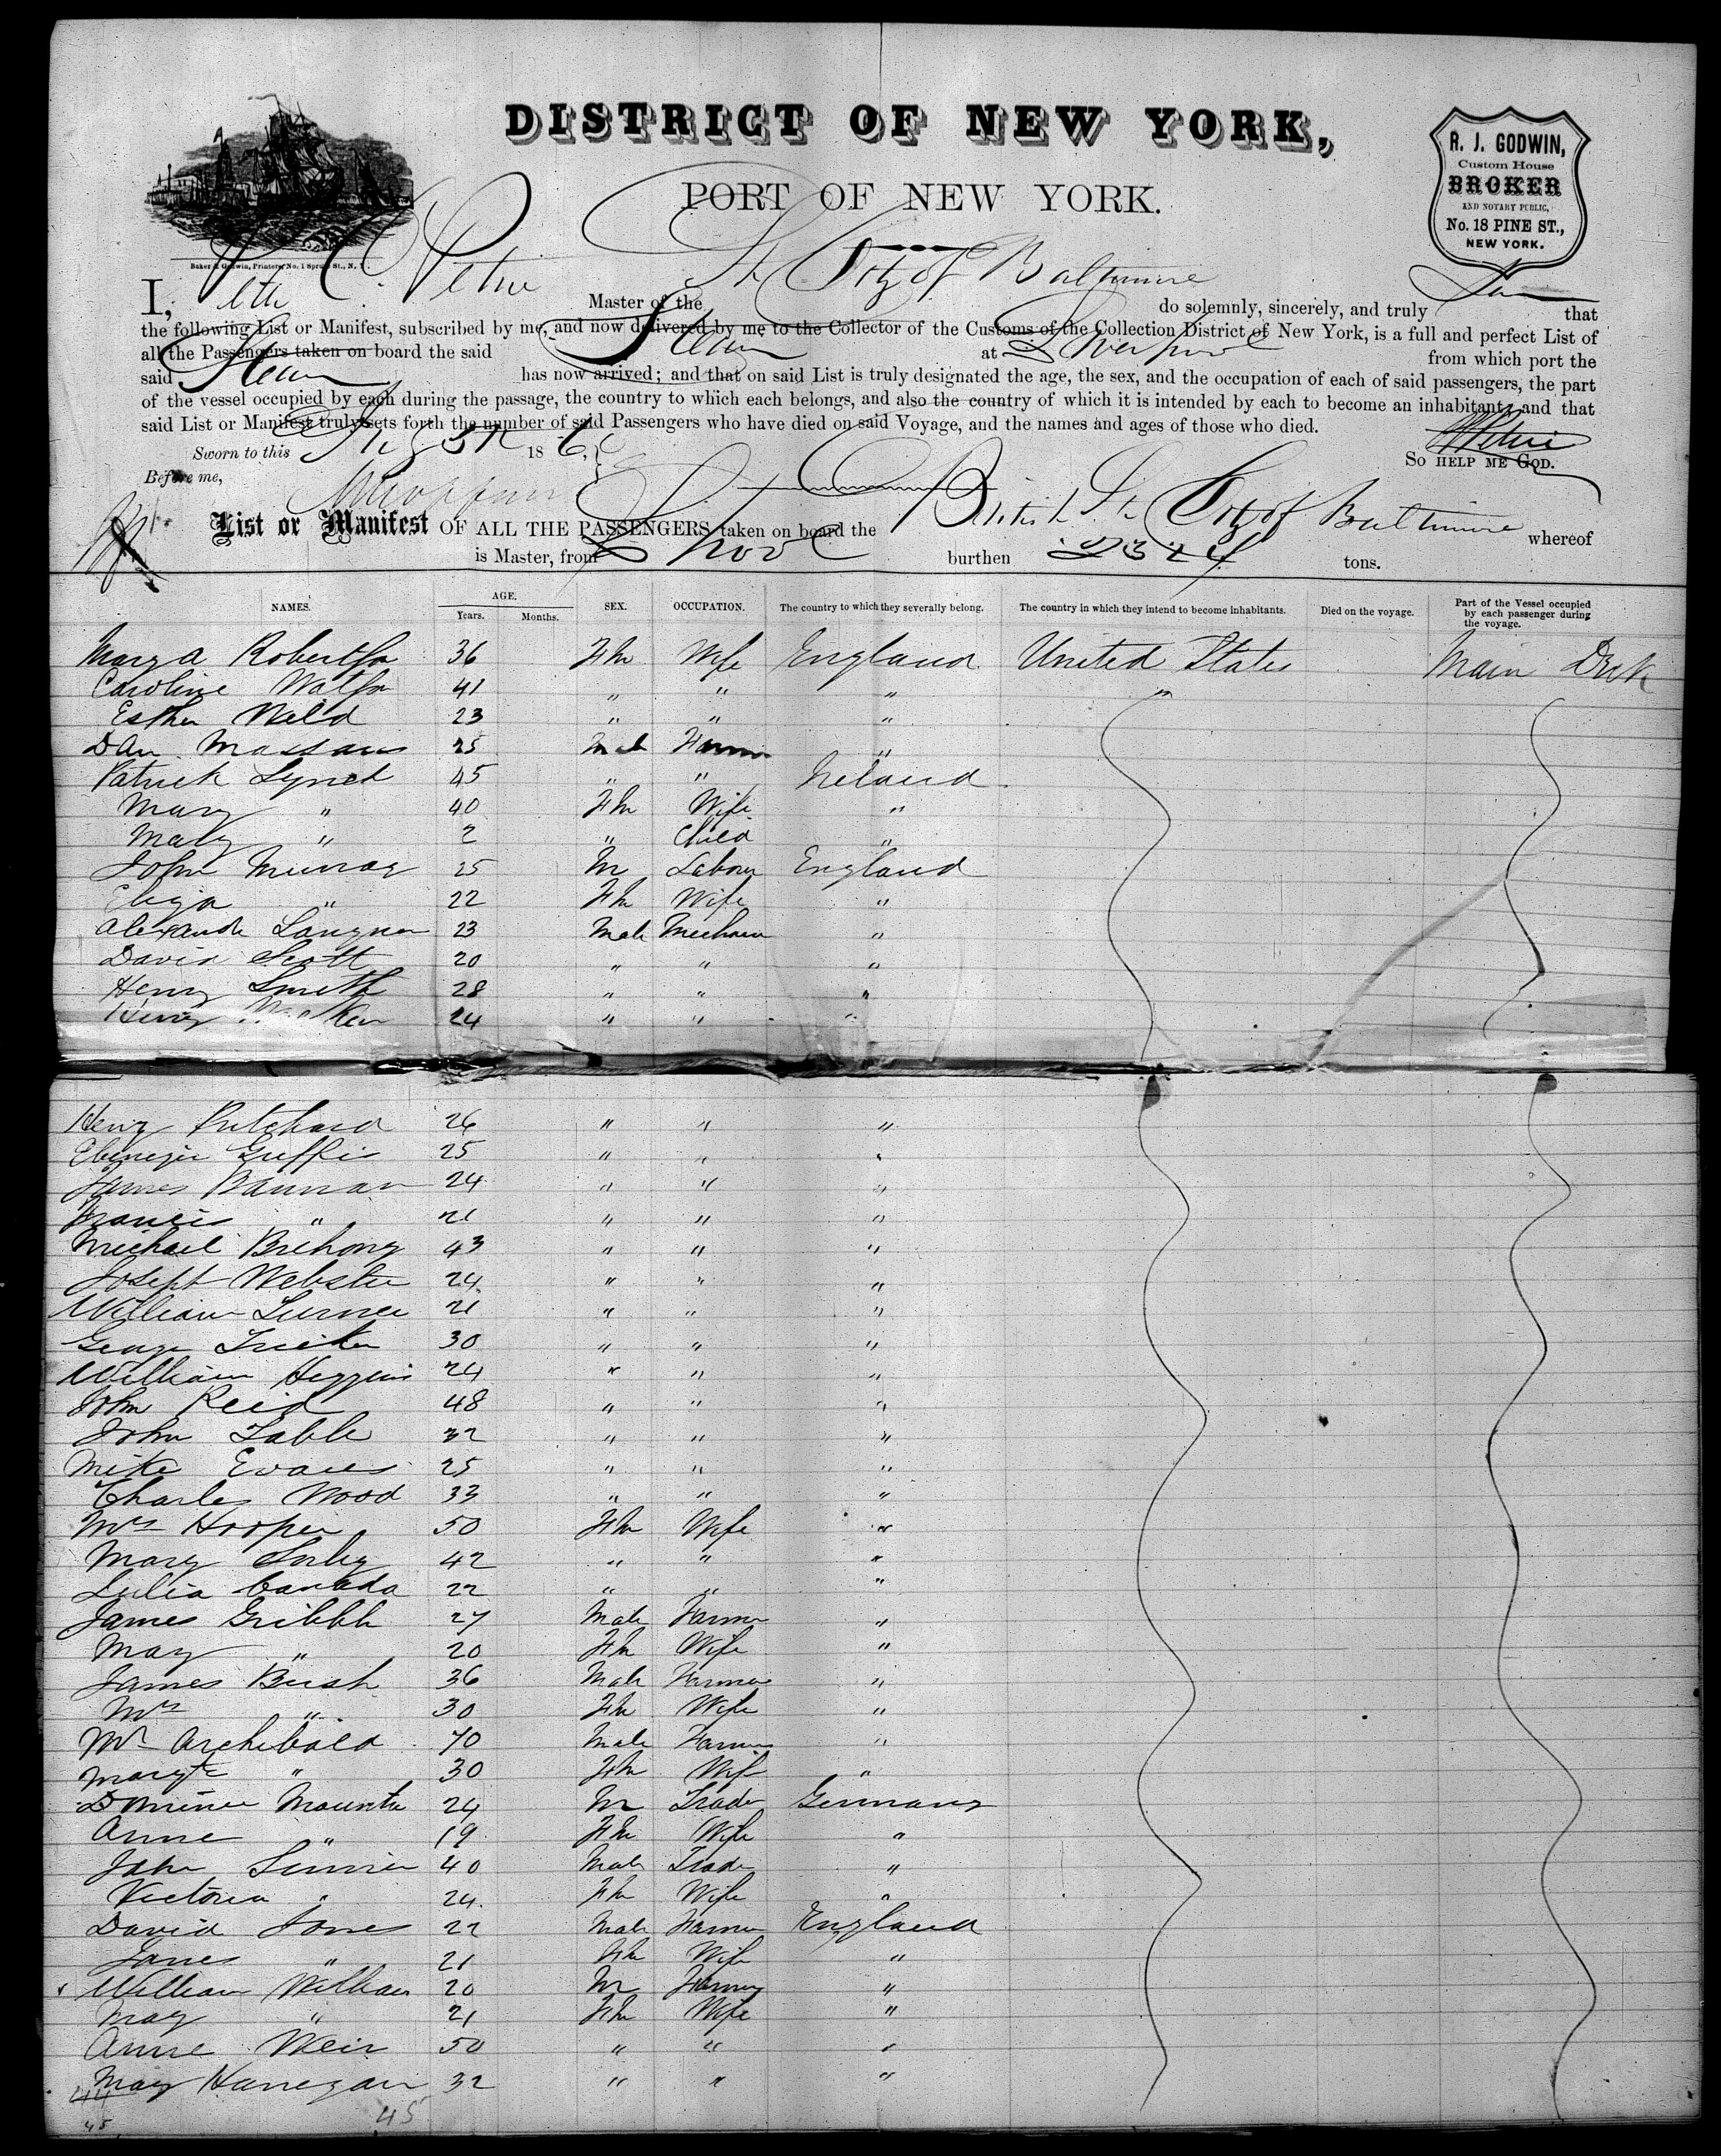 DISTRICT OF NEW YORK,
PORT OF NEW YORK.
R. J. GODWIN,
Custom House
BROKER
AND NOTARY PUBLIC,
No. 18 PINE ST.,
NEW YORK.
Baker & Godwin, Printers, No. 1 Spruce St., N. Y.
I, Petrie Master of the St City of Baltimore do solemnly, sincerely, and truly that
the following List or Manifest, subscribed by me, and now delivered by me to the Collector of the Customs of the Collection District of New York, is a full and perfect List of
all the Passengers taken on board the said Steam at Liverpool from which port the
said Steam has now arrived; and that on said List is truly designated the age, the sex, and the occupation of each of said passengers, the part
of the vessel occupied by each during the passage, the country to which each belongs, and also the country of which it is intended by each to become an inhabitant; and that
said List or Manifest truly sets forth the number of said Passengers who have died on said Voyage, and the names and ages of those who died.
Sworn to this 186
Petrie
So HELP ME GOD.
Before me,
List or Manifest OF ALL THE PASSENGERS taken on board the British St City of Baltimore whereof
is Master, from L'pool burthen tons.
NAMES. AGE. Years. Months. SEX. OCCUPATION. The country to which they severally belong. The country in which they intend to become inhabitants. Died on the voyage. Part of the Vessel occupied by each passenger during the voyage.
Mary A Robertson 36 Fm Wife England United States Main Deck
Caroline Watson 41 " " " "
Esther Weld 23 " " "
Dan 25 Male Farmer "
Patrick Lynch 45 " " Ireland
Mary " 40 Fm Wife "
Mary " 2 " Child "
John Murray 25 M Labour England
Eliza " 22 Fm Wife "
Alexande 23 Male "
David Scott 20 " " "
Henry Smith 28 " " "
Henry 24 " " "
Henry Pritchard 26 " " "
Ebenezer Griffis 25 " " "
James Bannan 24 " " "
Francis " 21 " " "
Michael Brehony 43 " " "
Joseph Webster 24 " " "
William Turner 21 " " "
George 30 " " "
William Higgins 24 " " "
John Reid 48 " " "
John Table 32 " " "
Mike Evans 25 " " "
Charles Wood 33 " " "
Mrs Hooper 50 Fm Wife "
Mary 42 " " "
Julia Canada 22 " " "
James Gribbh 27 Male Farmer "
May " 20 Fm Wife "
James Bush 36 Male Farmer "
Mrs " 30 Fm Wife "
Mr Archibald 70 Male Farmer "
Margt " 30 Fm Wife "
24 M Trader Germany
Anne " 19 Fm Wife "
John 40 Male Trader "
Victoria " 24 Fm Wife "
David Jones 22 Male Farmer England
Janes " 21 Fm Wife "
William William 20 M Farmer "
May " 21 Fm Wife "
Anne Weir 50 " " "
May Hanegan 32 " " "
44
45 45